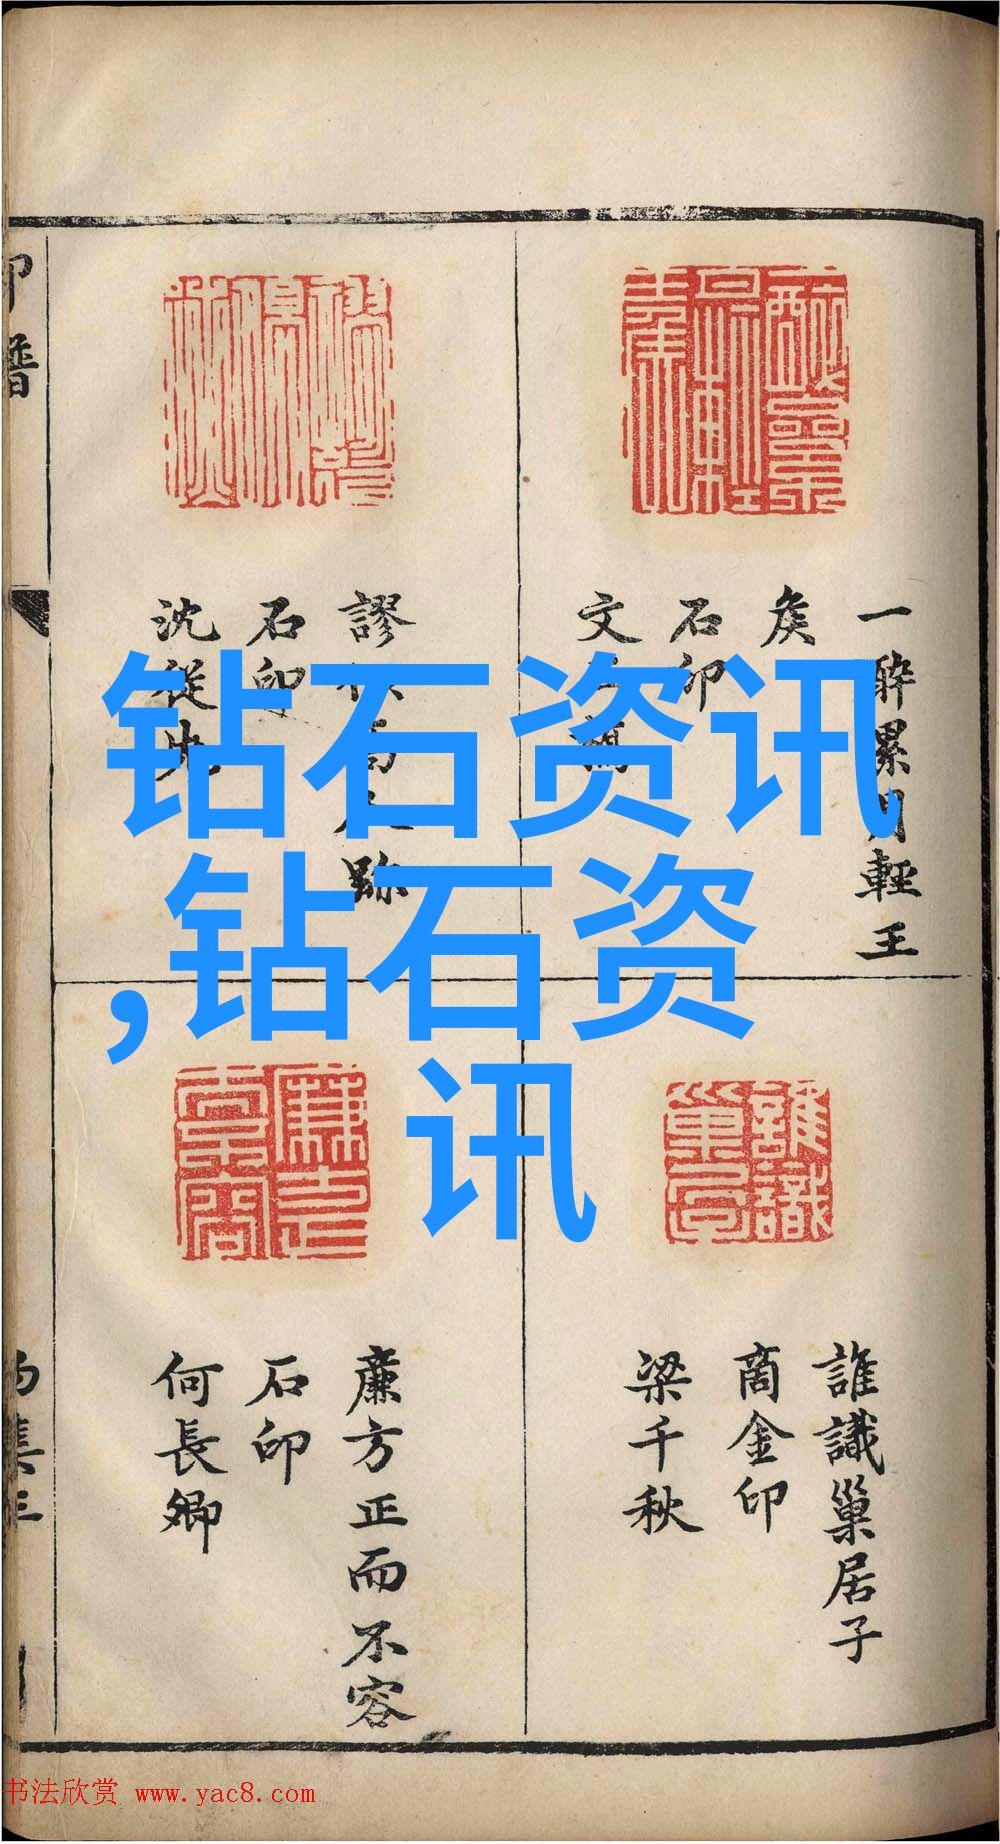 钻石资讯
,钻石资
讯
一醉累月輕王
矦
石印
文
謬
跡
石印
沈從先
誰識巢居子
商金印
梁千秋
廉方正而不容
石印
何長卿
印譜
书法欣赏 www.yac8.com